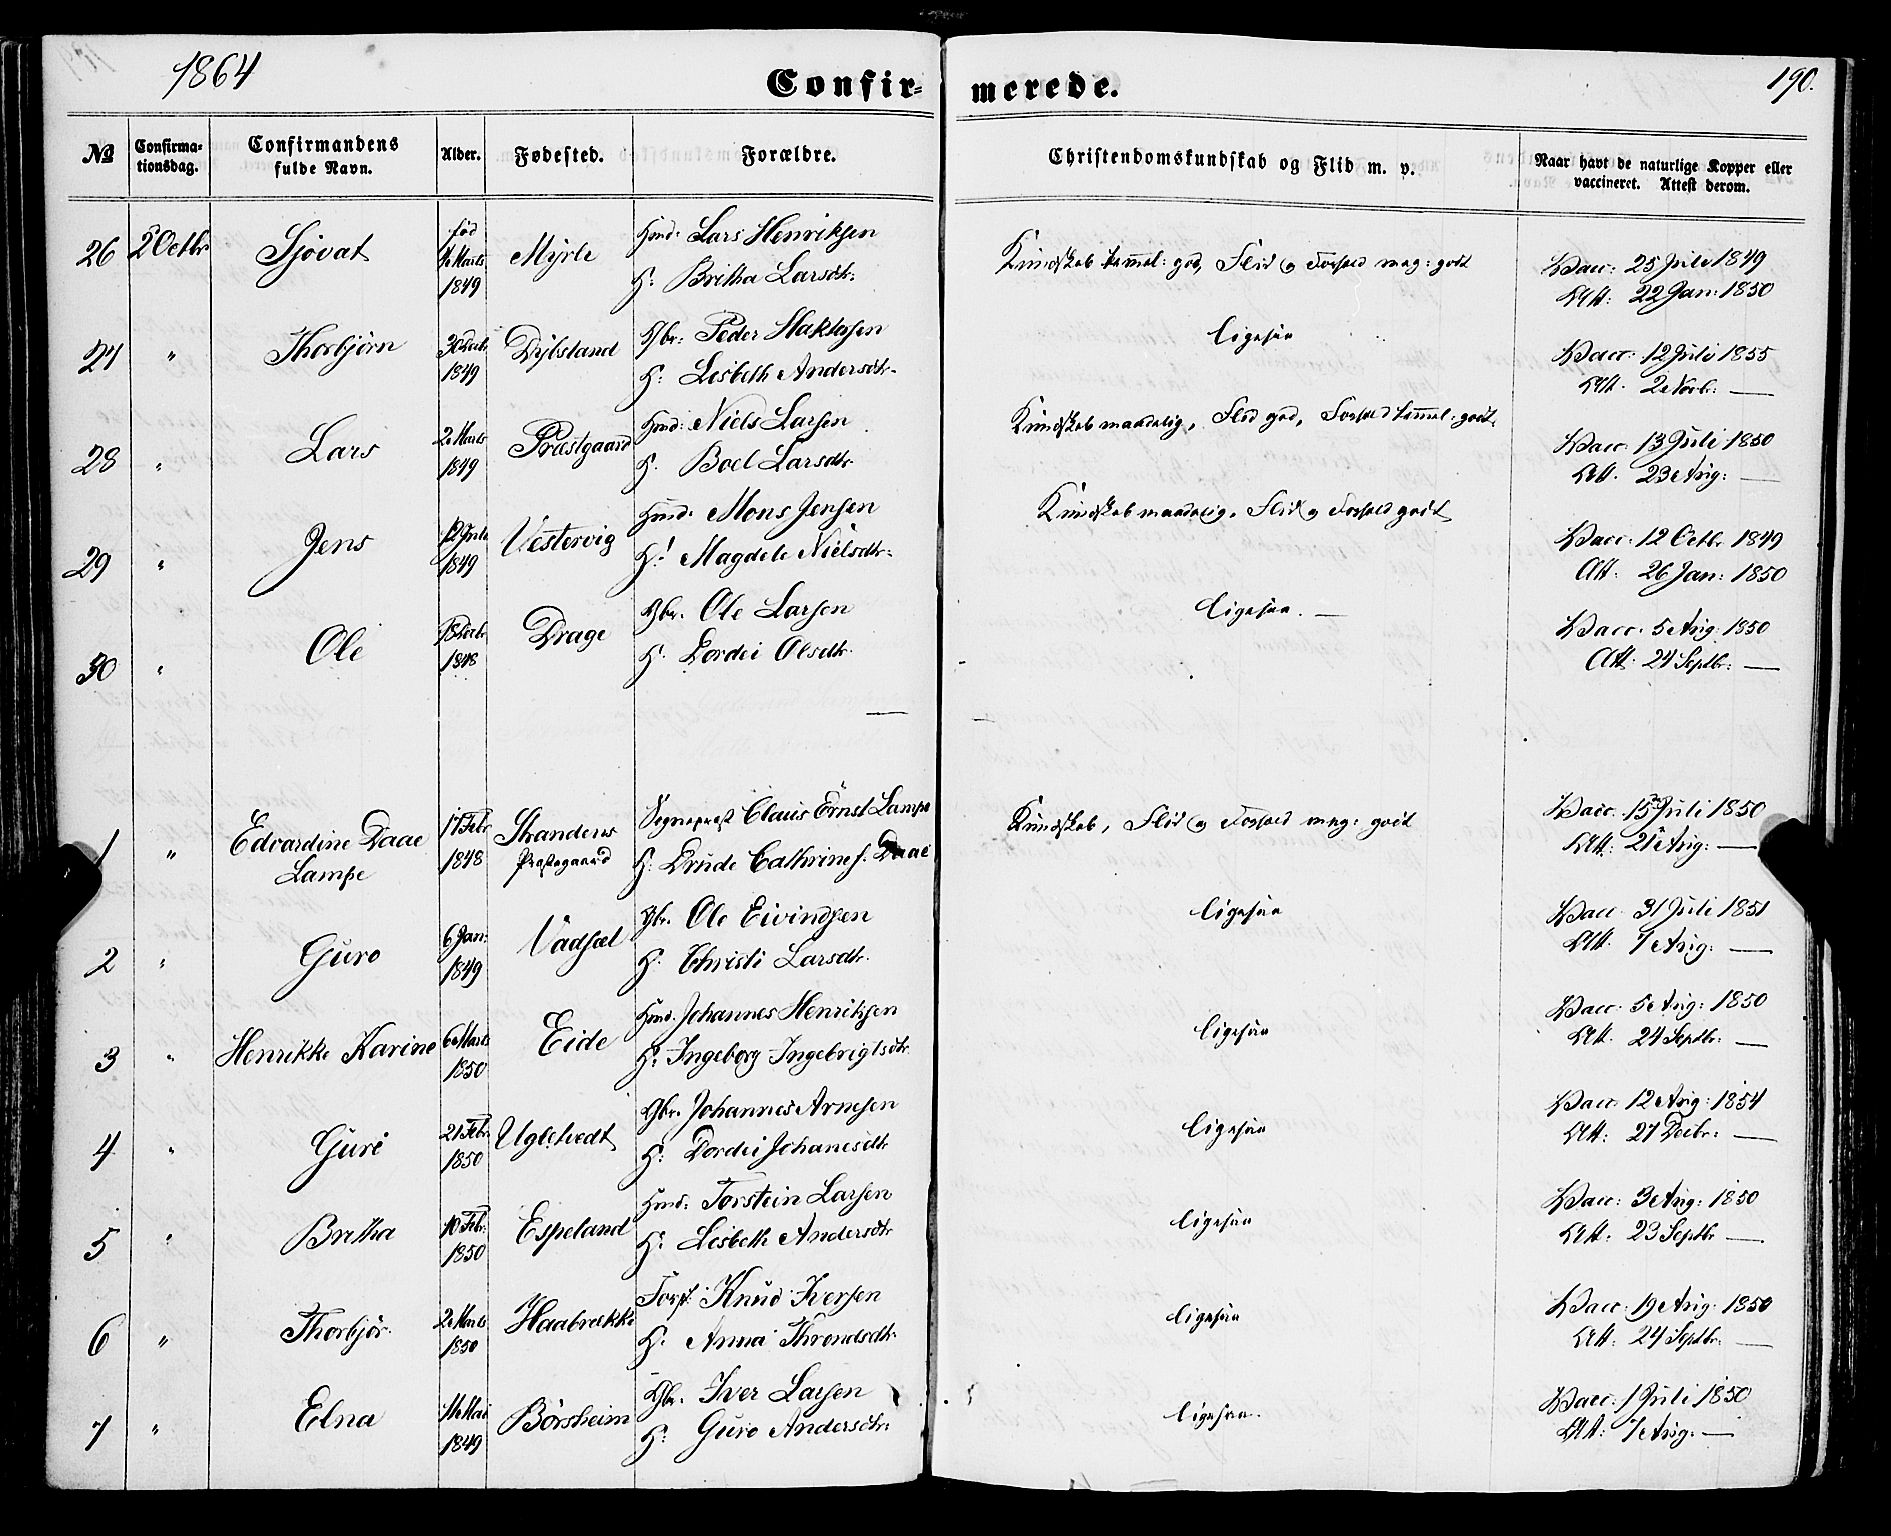 1864
Confir- merede.
190.
№ Confirma-tionsdag. Confirmandens fulde Navn. Alder. Fødested. Forældre. Christendomskundskab og Flid m. v. Naar havt de naturlige Kopper eller vaccineret. Attest derom.
26 2 Octbr Sjovat fød Marts 1849 Myrle Huusm: Lars Henriksen
H: Britha Larsdtr. Kundskab temmel: god, Flid og Forhold meg: godt Vacc: 25 Juli 1849
Att: 22 Jan: 1850
27 " Thorbjørn 1849 Dybsland Gbr: Peder Haktorsen
H: Lisbeth Andersdtr. ligesaa Vacc: 12 Juli 1855
Att. 2 Novbr: —
28 " Lars 2 Marts 1849 Præstgaard Huusm: Niels Larsen
H. Boel Larsdtr Kundskab maadelig, Flid god, Forhold temmel: godt. Vacc. 13 Juli 1850
Att. 23 Aug: —
29 " Jens 1849 Vestervig Huusm: Mons Jensen
H: Magdele Nielsdtr. Kundskab maadelig, Flid og Forhold godt Vacc: 12 Octbr 1849
Att: 26 Jan: 1850
30 " Ole 1848 Drage Gbr. Ole Larsen
H. Dordei Olsdtr. ligesaa. — Vacc. 5 Aug: 1850
Att: 24 Septbr: —
1 " Edvardine Daae Lampe 17 Febr 1848 Strandens Præstegaard Sogneprest Claus Ernst Lampe
H: Drude Cathrine f. Daae Kundskab, Flid og Forhold meg: godt Vacc. 15 Juli 1850
Att: 21 Aug: —
2 " Guro 6 Jan: 1849 Vadsel Gbr. Ole Eivindsen
H. Christi Larsdtr. ligesaa Vacc. 31 Juli 1851
Att. 7 Aug: —
3 " Henrikke Karine 6 Marts 1850 Eide Huusm. Johannes Henriksen
H. Ingeborg Ingebrigtsdtr ligesaa Vacc. 5 Aug: 1850
Att. 24 Septbr: —
4 " Guro 21 Febr 1850 Uglehvedt Gbr. Johannes Arnesen
H: Dordei Johanesdtr ligesaa Vacc. 12 Aug: 1854
Att: 27 Decbr: —
5 " Britha 10 Febr. 1850 Espeland Huusm: Torstein Larsen
H: Lisbeth Andersdtr ligesaa Vacc: 3 Aug: 1850
Att: 23 Septbr —
6 " Thorbjør. 2 Marts 1850 Haabrekke Forp: Knud Iversen
H. Anna Throndsdtr. ligesaa Vacc: 19 Aug: 1850
Att: 24 Septbr: —
7 " Elna Mai 1849 Börsheim Gbr. Iver Larsen
H: Guro Andersdtr: ligesaa. Vacc. 1 Juli 1850
Att: 7 Aug: —